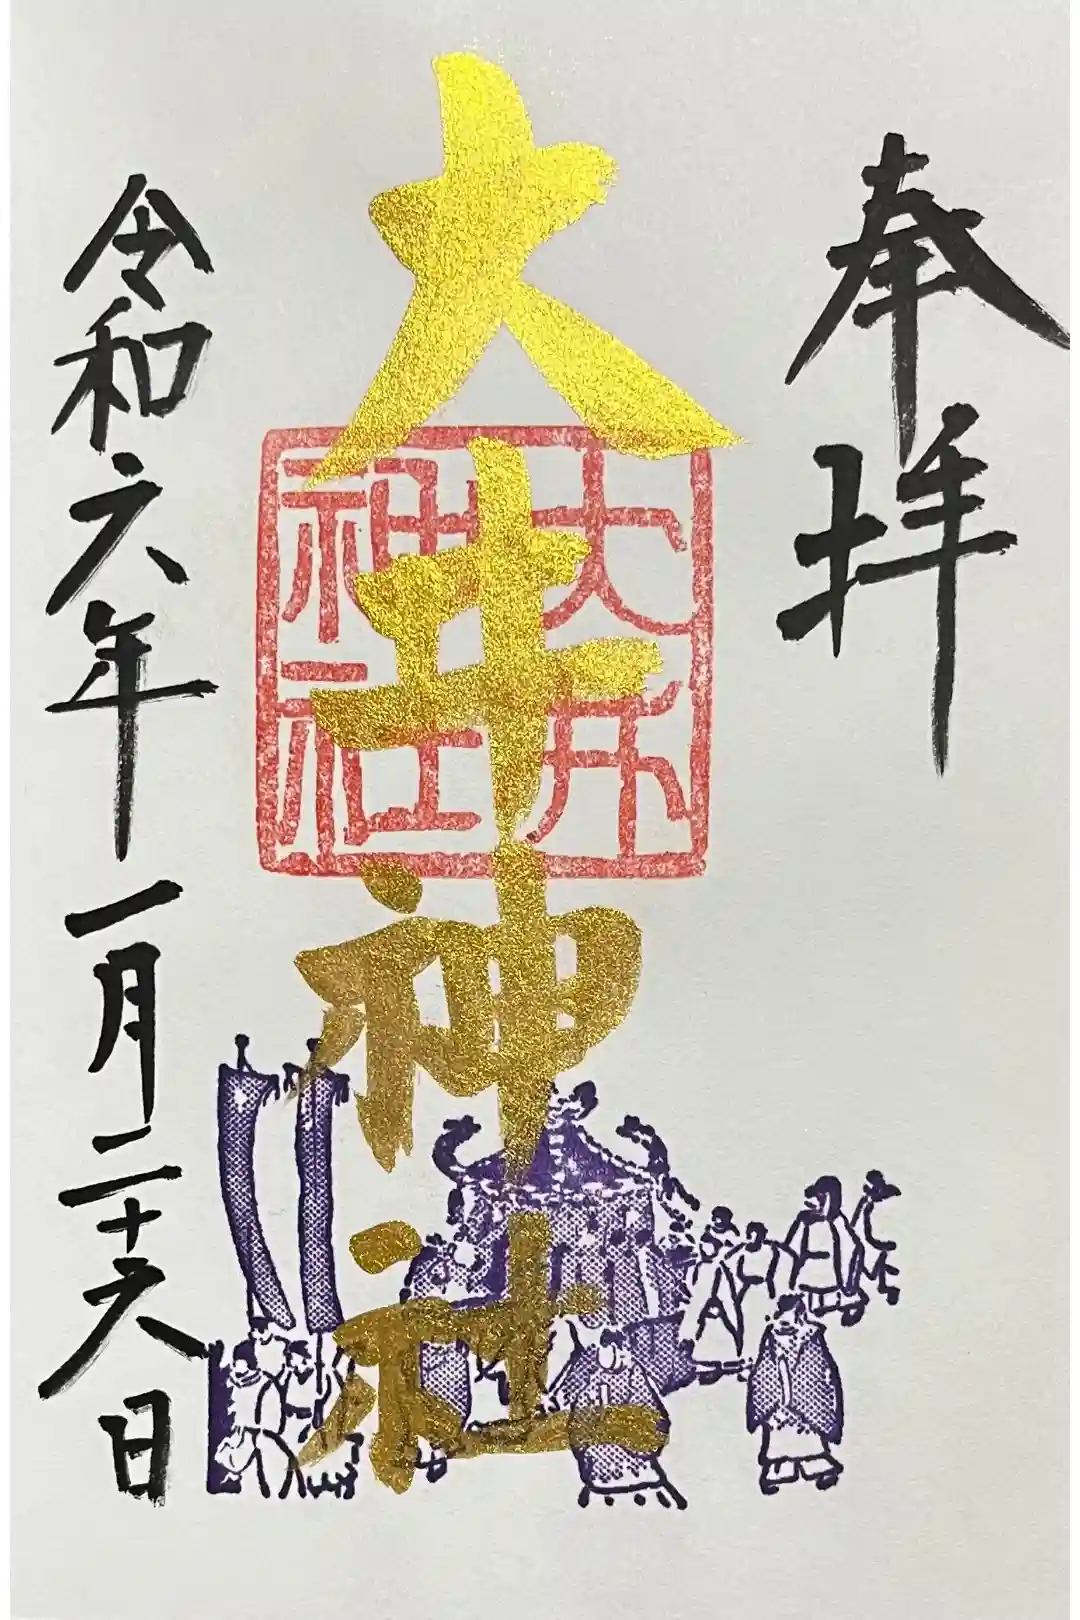 奉拝
大井神社
大井
神社
令和六年一月二十六日